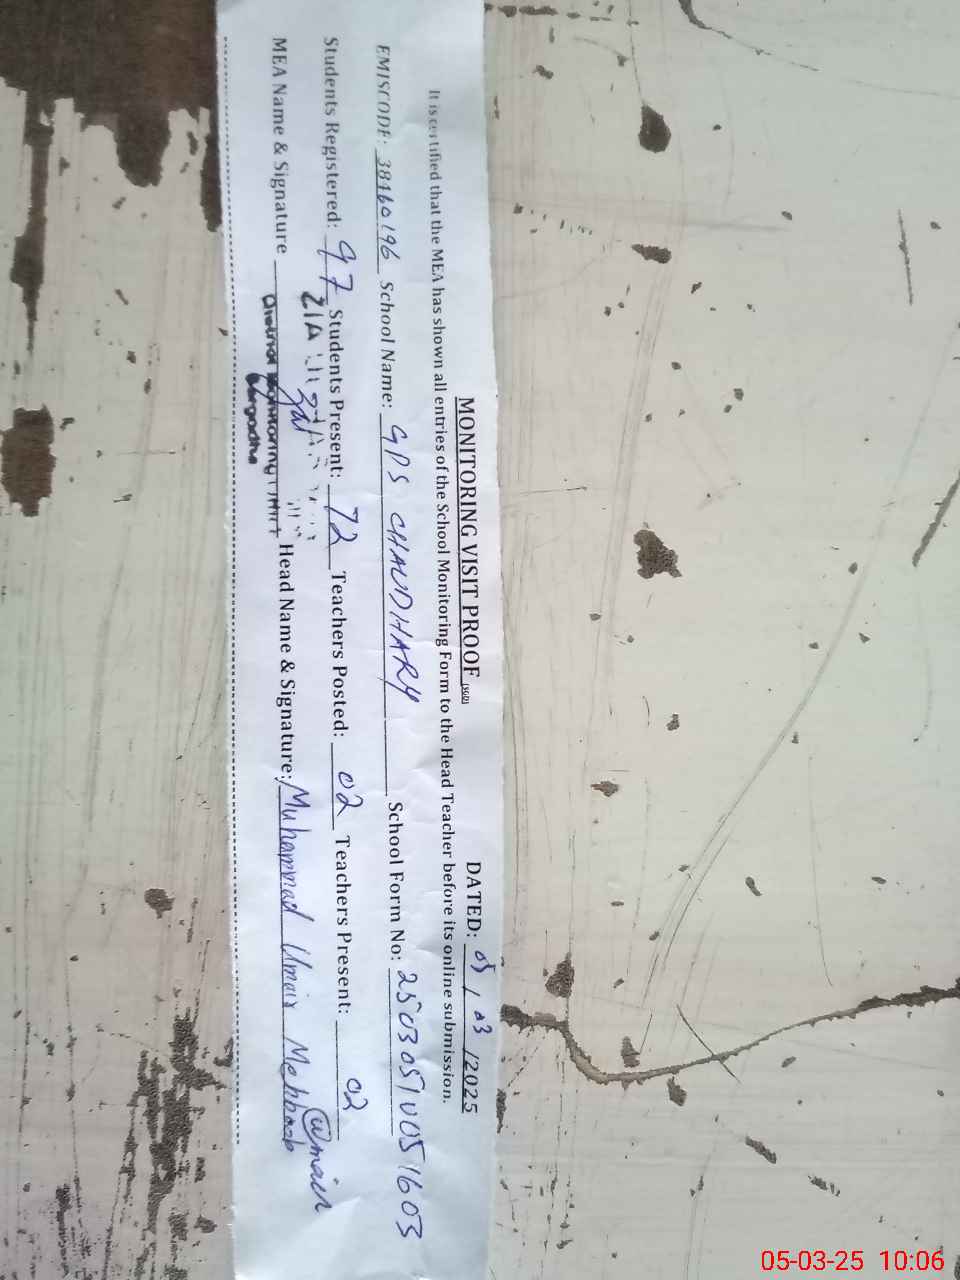 MONITORING VISIT PROOF (SED) DATED: 05 / 03 /2025
It is certified that the MEA has shown all entries of the School Monitoring Form to the Head Teacher before its online submission.
EMISCODE: 38460196 School Name: GPS CHAUDHARY School Form No: 25030510051603
Students Registered: 97 Students Present: 72 Teachers Posted: 02 Teachers Present: 02
MEA Name & Signature Head Name & Signature: Muhammad Umair Mehboob
ZIA
District Monitoring
Sargodha
@umair
05-03-25 10:06